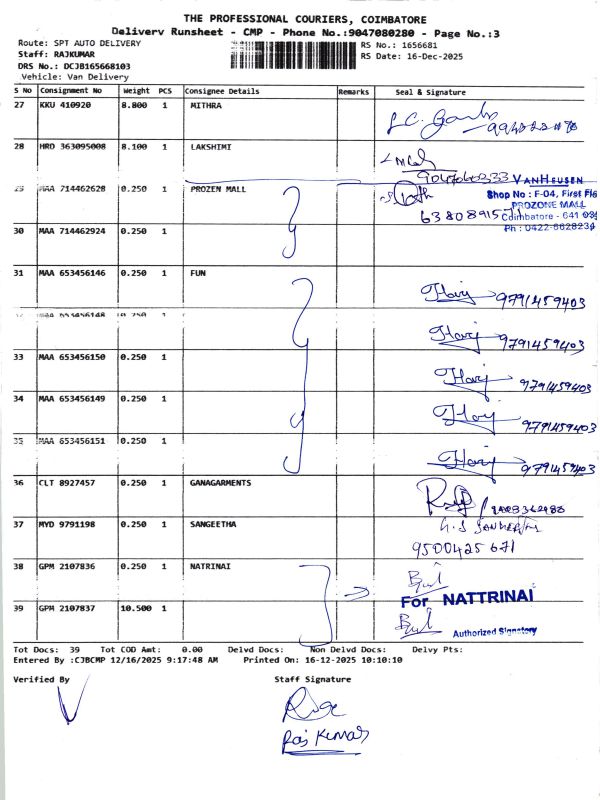 THE PROFESSIONAL COURIERS, COIMBATORE
Delivery Runsheet - CMP - Phone No.:9047080280 - Page No.:3
Route: SPT AUTO DELIVERY
RS No.: 1656681
Staff: RAJKUMAR
RS Date: 16-Dec-2025
DRS No.: DCJB165668103
Vehicle: Van Delivery
S No Consignment No Weight PCS Consignee Details Remarks Seal & Signature
27 KKU 410920 8.800 1 MITHRA
28 HRD 363095008 8.100 1 LAKSHIMI
9047040333 VANHEUSEN
29 MAA 714462628 0.250 1 PROZEN MALL
Shop No : F-04, First
PROZONE MALL
Coimbatore - 641
Ph : 0422-6628234
30 MAA 714462924 0.250 1
31 MAA 653456146 0.250 1 FUN
Hari 9791459403
32 MAA 653456148 0.250 1
Hari 9791459403
33 MAA 653456150 0.250 1
Hari 9791459403
34 MAA 653456149 0.250 1
Hari 9791459403
35 MAA 653456151 0.250 1
Hari 9791459403
36 CLT 8927457 0.250 1 GANAGARMENTS
37 MYD 9791198 0.250 1 SANGEETHA
9500425671
38 GPM 2107836 0.250 1 NATRINAI
For NATTRINAI
39 GPM 2107837 10.500 1
Authorized Signatory
Tot Docs: 39 Tot COD Amt: 0.00 Delvd Docs: Non Delvd Docs: Delvy Pts:
Entered By :CJBCMP 12/16/2025 9:17:48 AM Printed On: 16-12-2025 10:10:10
Verified By Staff Signature
Raj Kumar